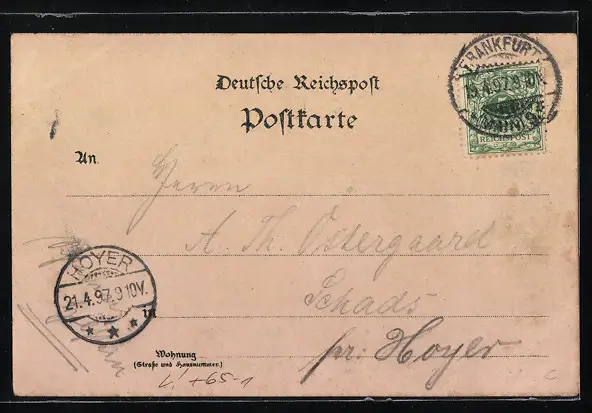 Deutsche Reichspost
Postkarte
FRANKFURT
19.4.97. 9-10V.
(MAIN)
REICHSPOST
An.
Herrn
A. Th. Östergaard
Schads
pr. Hoyer
HOYER
21.4.97. 9 10V.
in
Wohnung
(Straße und Hausnummer.)